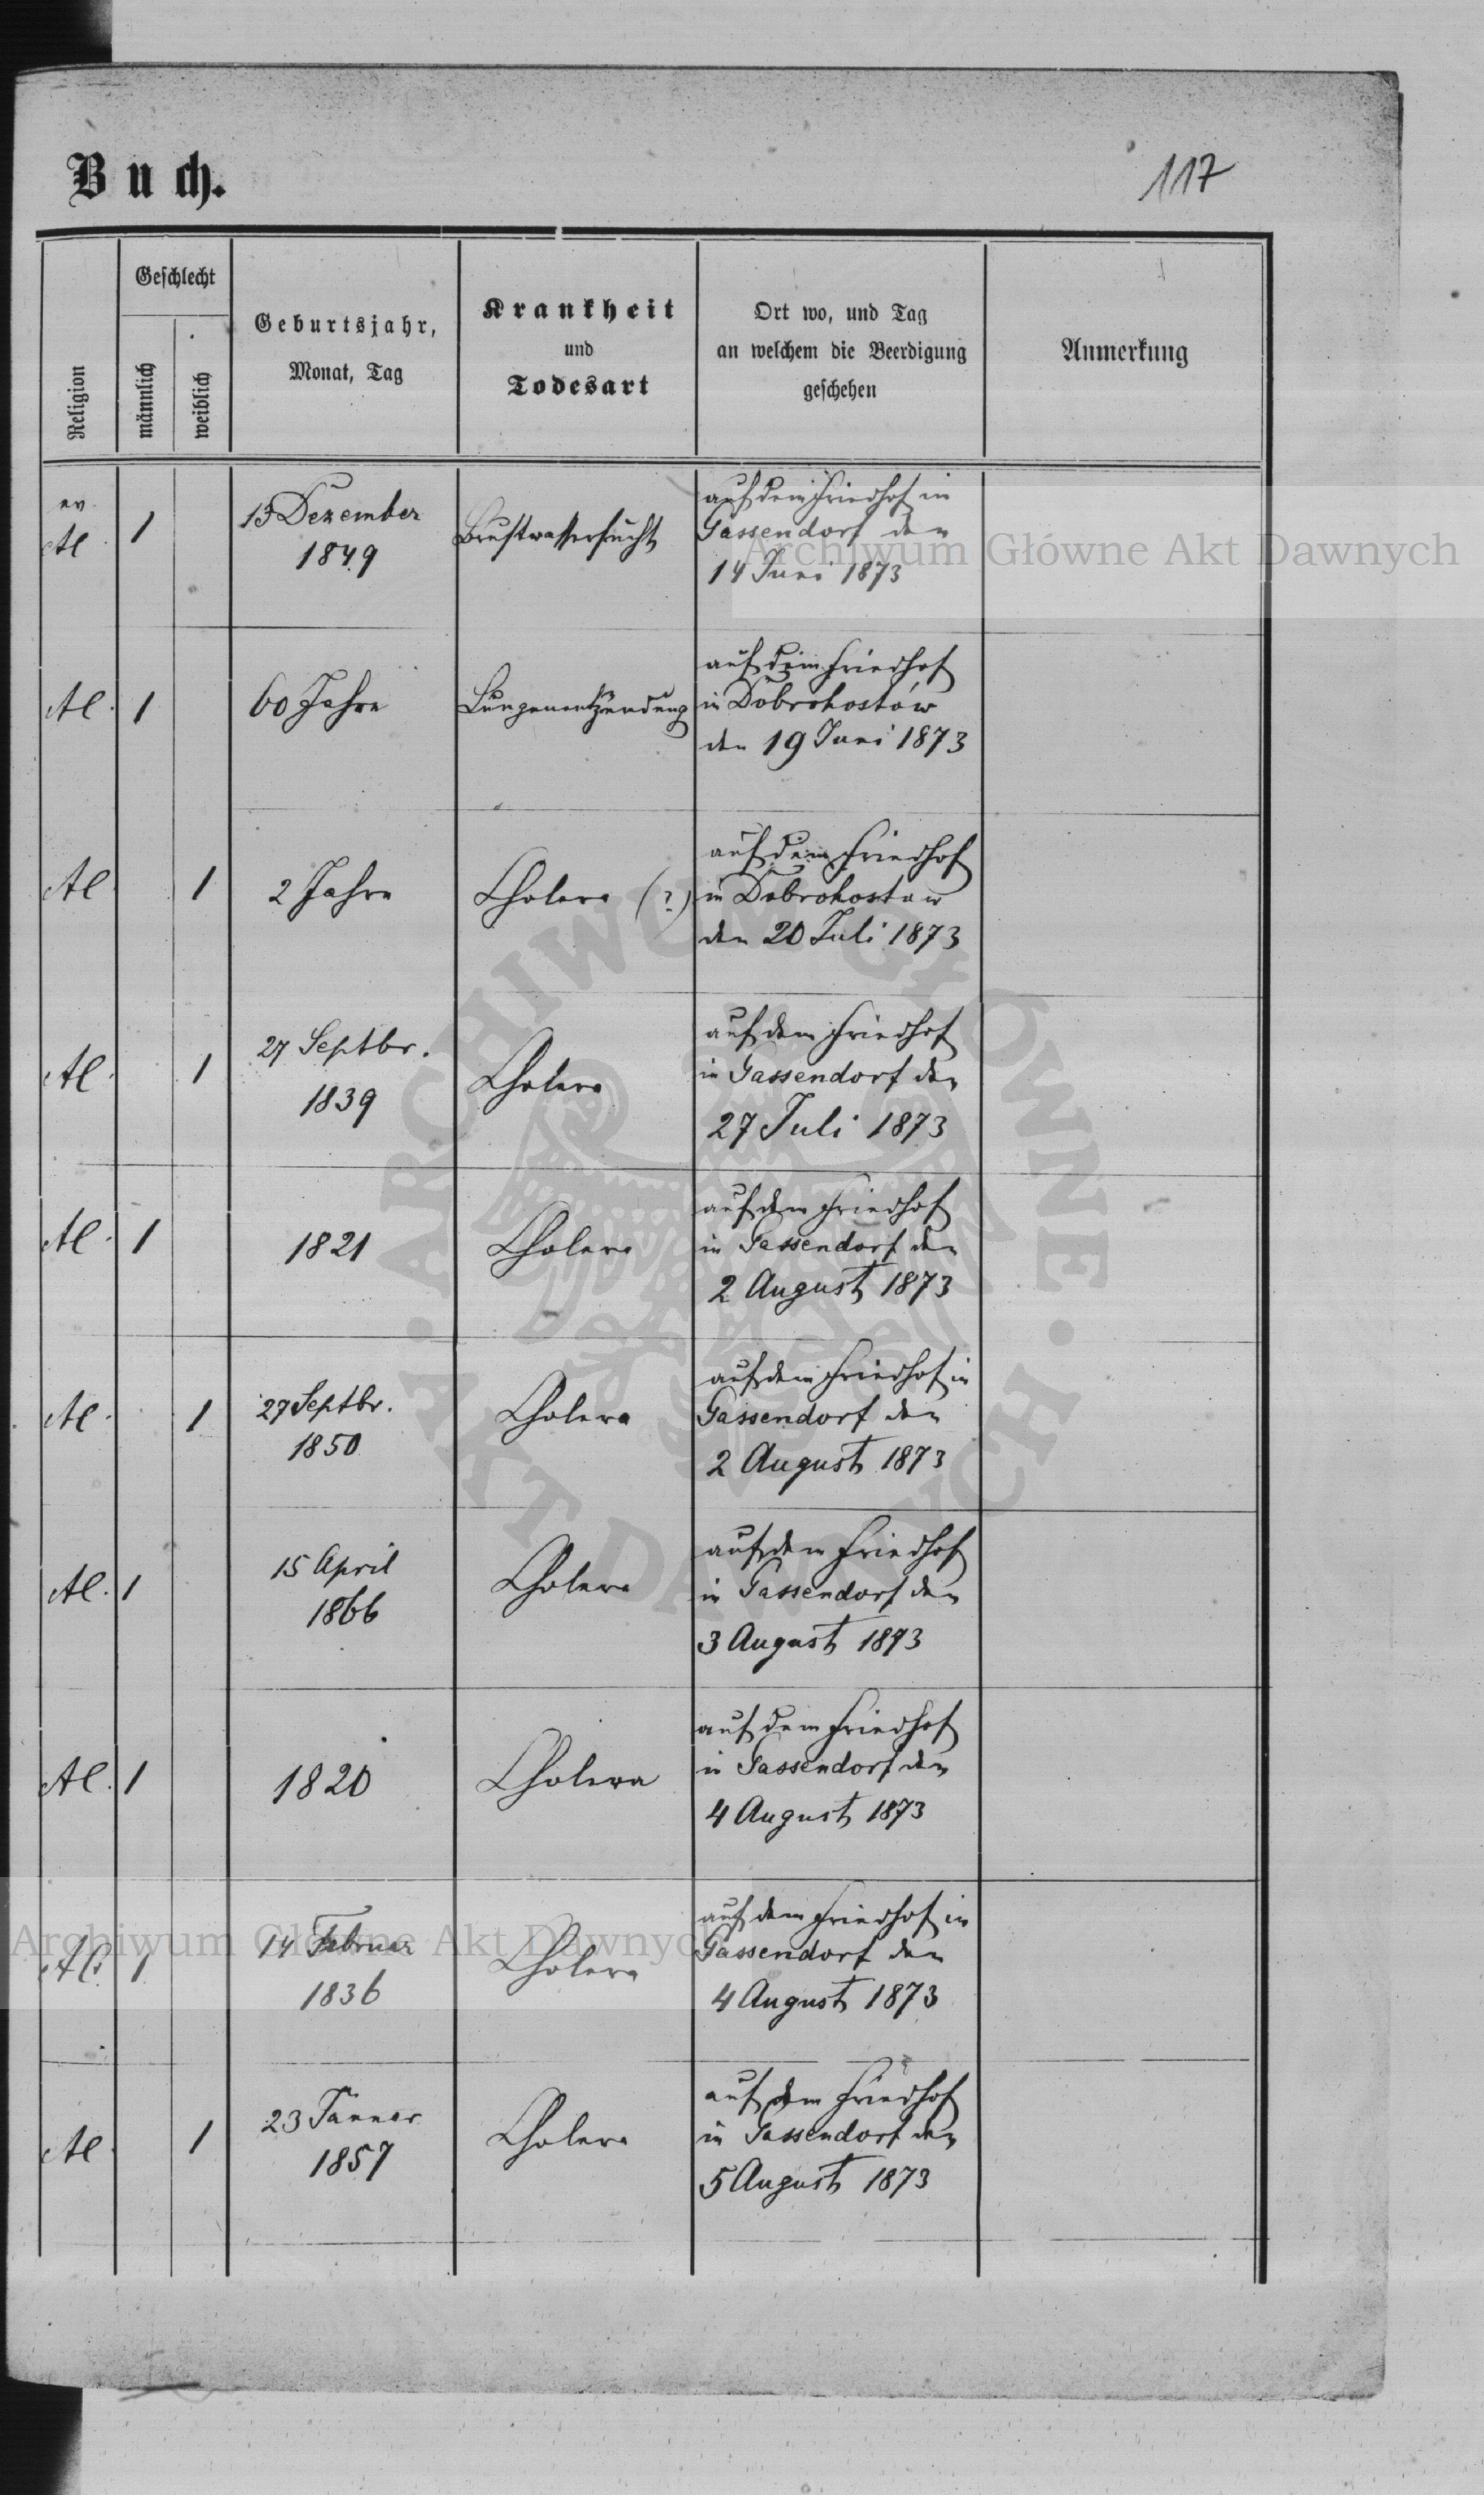 Buch.
117
Religion
Geschlecht
männlich
weiblich
Geburtsjahr,
Monat, Tag
Krankheit
und
Todesart
Ort wo, und Tag
an welchem die Beerdigung
geschehen
Anmerkung
ev.
AC 1 13 Dezember
1849
Brustwassersucht
auf dem Friedhof in
Gassendorf den
14 Juni 1873
AC. 1 60 Jahre Lungenentzündung
auf dem Friedhof
in Dobrohostów
den 19 Juni 1873
AC 1 2 Jahre Cholera (?)
auf dem Friedhof
in Dobrohostow
den 20 Juli 1873
AC. 1 27 Septbr.
1839
Cholera
auf dem Friedhof
in Gassendorf den
27 Juli 1873
AC. 1 1821 Cholera
auf dem Friedhof
in Gassendorf den
2 August 1873
AC. 1 27 Septbr.
1850
Cholera
auf dem Friedhof in
Gassendorf den
2 August 1873
AC. 1 15 April
1866
Cholera
auf dem Friedhof
in Gassendorf den
3 August 1873
AC. 1 1820 Cholera
auf dem Friedhof
in Gassendorf den
4 August 1873
AC 1 14 Februar
1836
Cholera
auf dem Friedhof in
Gassendorf den
4 August 1873
AC. 1 23 Jänner
1857
Cholera
auf dem Friedhof
in Gassendorf den
5 August 1873
Archiwum Główne Akt Dawnych
ARCHIWUM GŁÓWNE · AKT DAWNYCH ·
Archiwum Główne Akt Dawnych